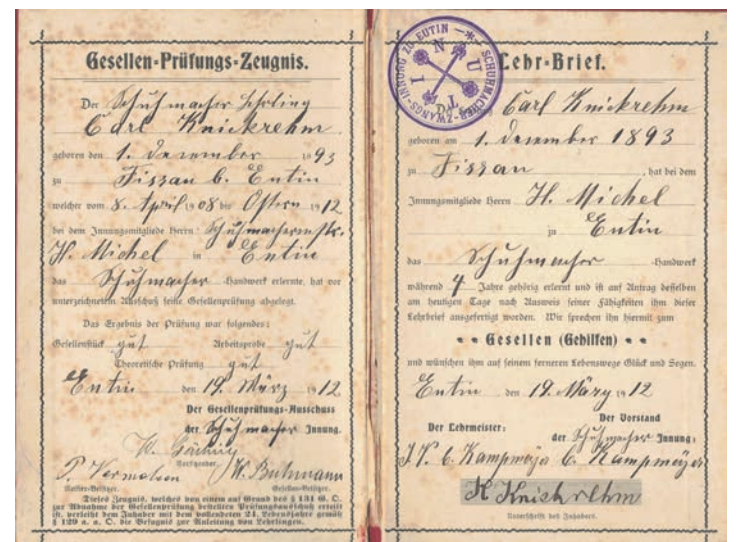 Gesellen-Prüfungs-Zeugnis.
Der Schuhmacher Lehrling
Carl Knickrehm
geboren den 1. Dezember 1893
zu Fissau b. Eutin
welcher vom 8. April 1908 bis Ostern 1912
bei dem Innungsmitgliede Herrn Schuhmachermstr.
H. Michel in Eutin
das Schuhmacher -Handwerk erlernte, hat vor
unterzeichnetem Ausschuß seine Gesellenprüfung abgelegt.
Das Ergebnis der Prüfung war folgendes:
Gesellenstück gut Arbeitsprobe gut
Theoretische Prüfung gut
Eutin den 19. März 1912
Der Gesellenprüfungs-Ausschuss
der Schuhmacher Innung.
Vorsitzender.
W. Buhmann
Meister-Beisitzer. Gesellen-Beisitzer.
Dieses Zeugnis, welches von einem auf Grund des § 131 G. O.
zur Abnahme der Gesellenprüfung bestellten Prüfungsausschuß erteilt
ist, verleiht dem Inhaber mit dem vollendeten 24. Lebensjahre gemäß
§ 129 a. a. O. die Befugnis zur Anleitung von Lehrlingen.
SCHUHMACHER-ZWANGS-INNUNG ZU EUTIN
Lehr-Brief.
Carl Knickrehm
geboren am 1. Dezember 1893
zu Fissau, hat bei dem
Innungsmitgliede Herrn H. Michel
zu Eutin
das Schuhmacher -Handwerk
während 4 Jahre gehörig erlernt und ist auf Antrag desselben
am heutigen Tage nach Ausweis seiner Fähigkeiten ihm dieser
Lehrbrief ausgefertigt worden. Wir sprechen ihn hiermit zum
Gesellen (Gehilfen)
und wünschen ihm auf seinem ferneren Lebenswege Glück und Segen.
Eutin den 19. März 1912
Der Lehrmeister: Der Vorstand
der Schuhmacher Innung:
J.V. C. Kampmeyer C. Kampmeyer
K Knickrehm
Unterschrift des Inhabers.